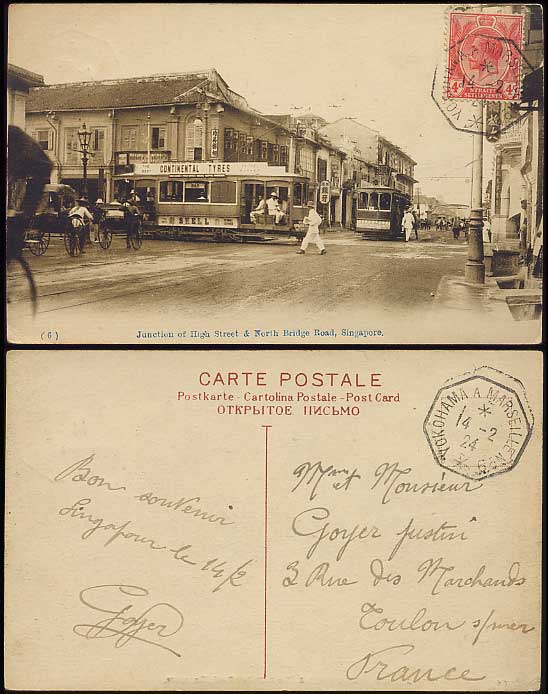 4c
STRAITS
SETTLEMENTS
4c
14 - 2
CONTINENTAL TYRES
SHELL
(6)
Junction of High Street & North Bridge Road, Singapore.
CARTE POSTALE
Postkarte - Cartolina Postale - Post Card
ОТКРЫТОЕ ПИСЬМО
YOKOHAMA A MARSEILLE Nº 6
14 - 2
24
Bon souvenir
Singapour le 14/2
Goyer
Mme et Monsieur
Goyer Justin
3 Rue des Marchands
Toulon s/mer
France